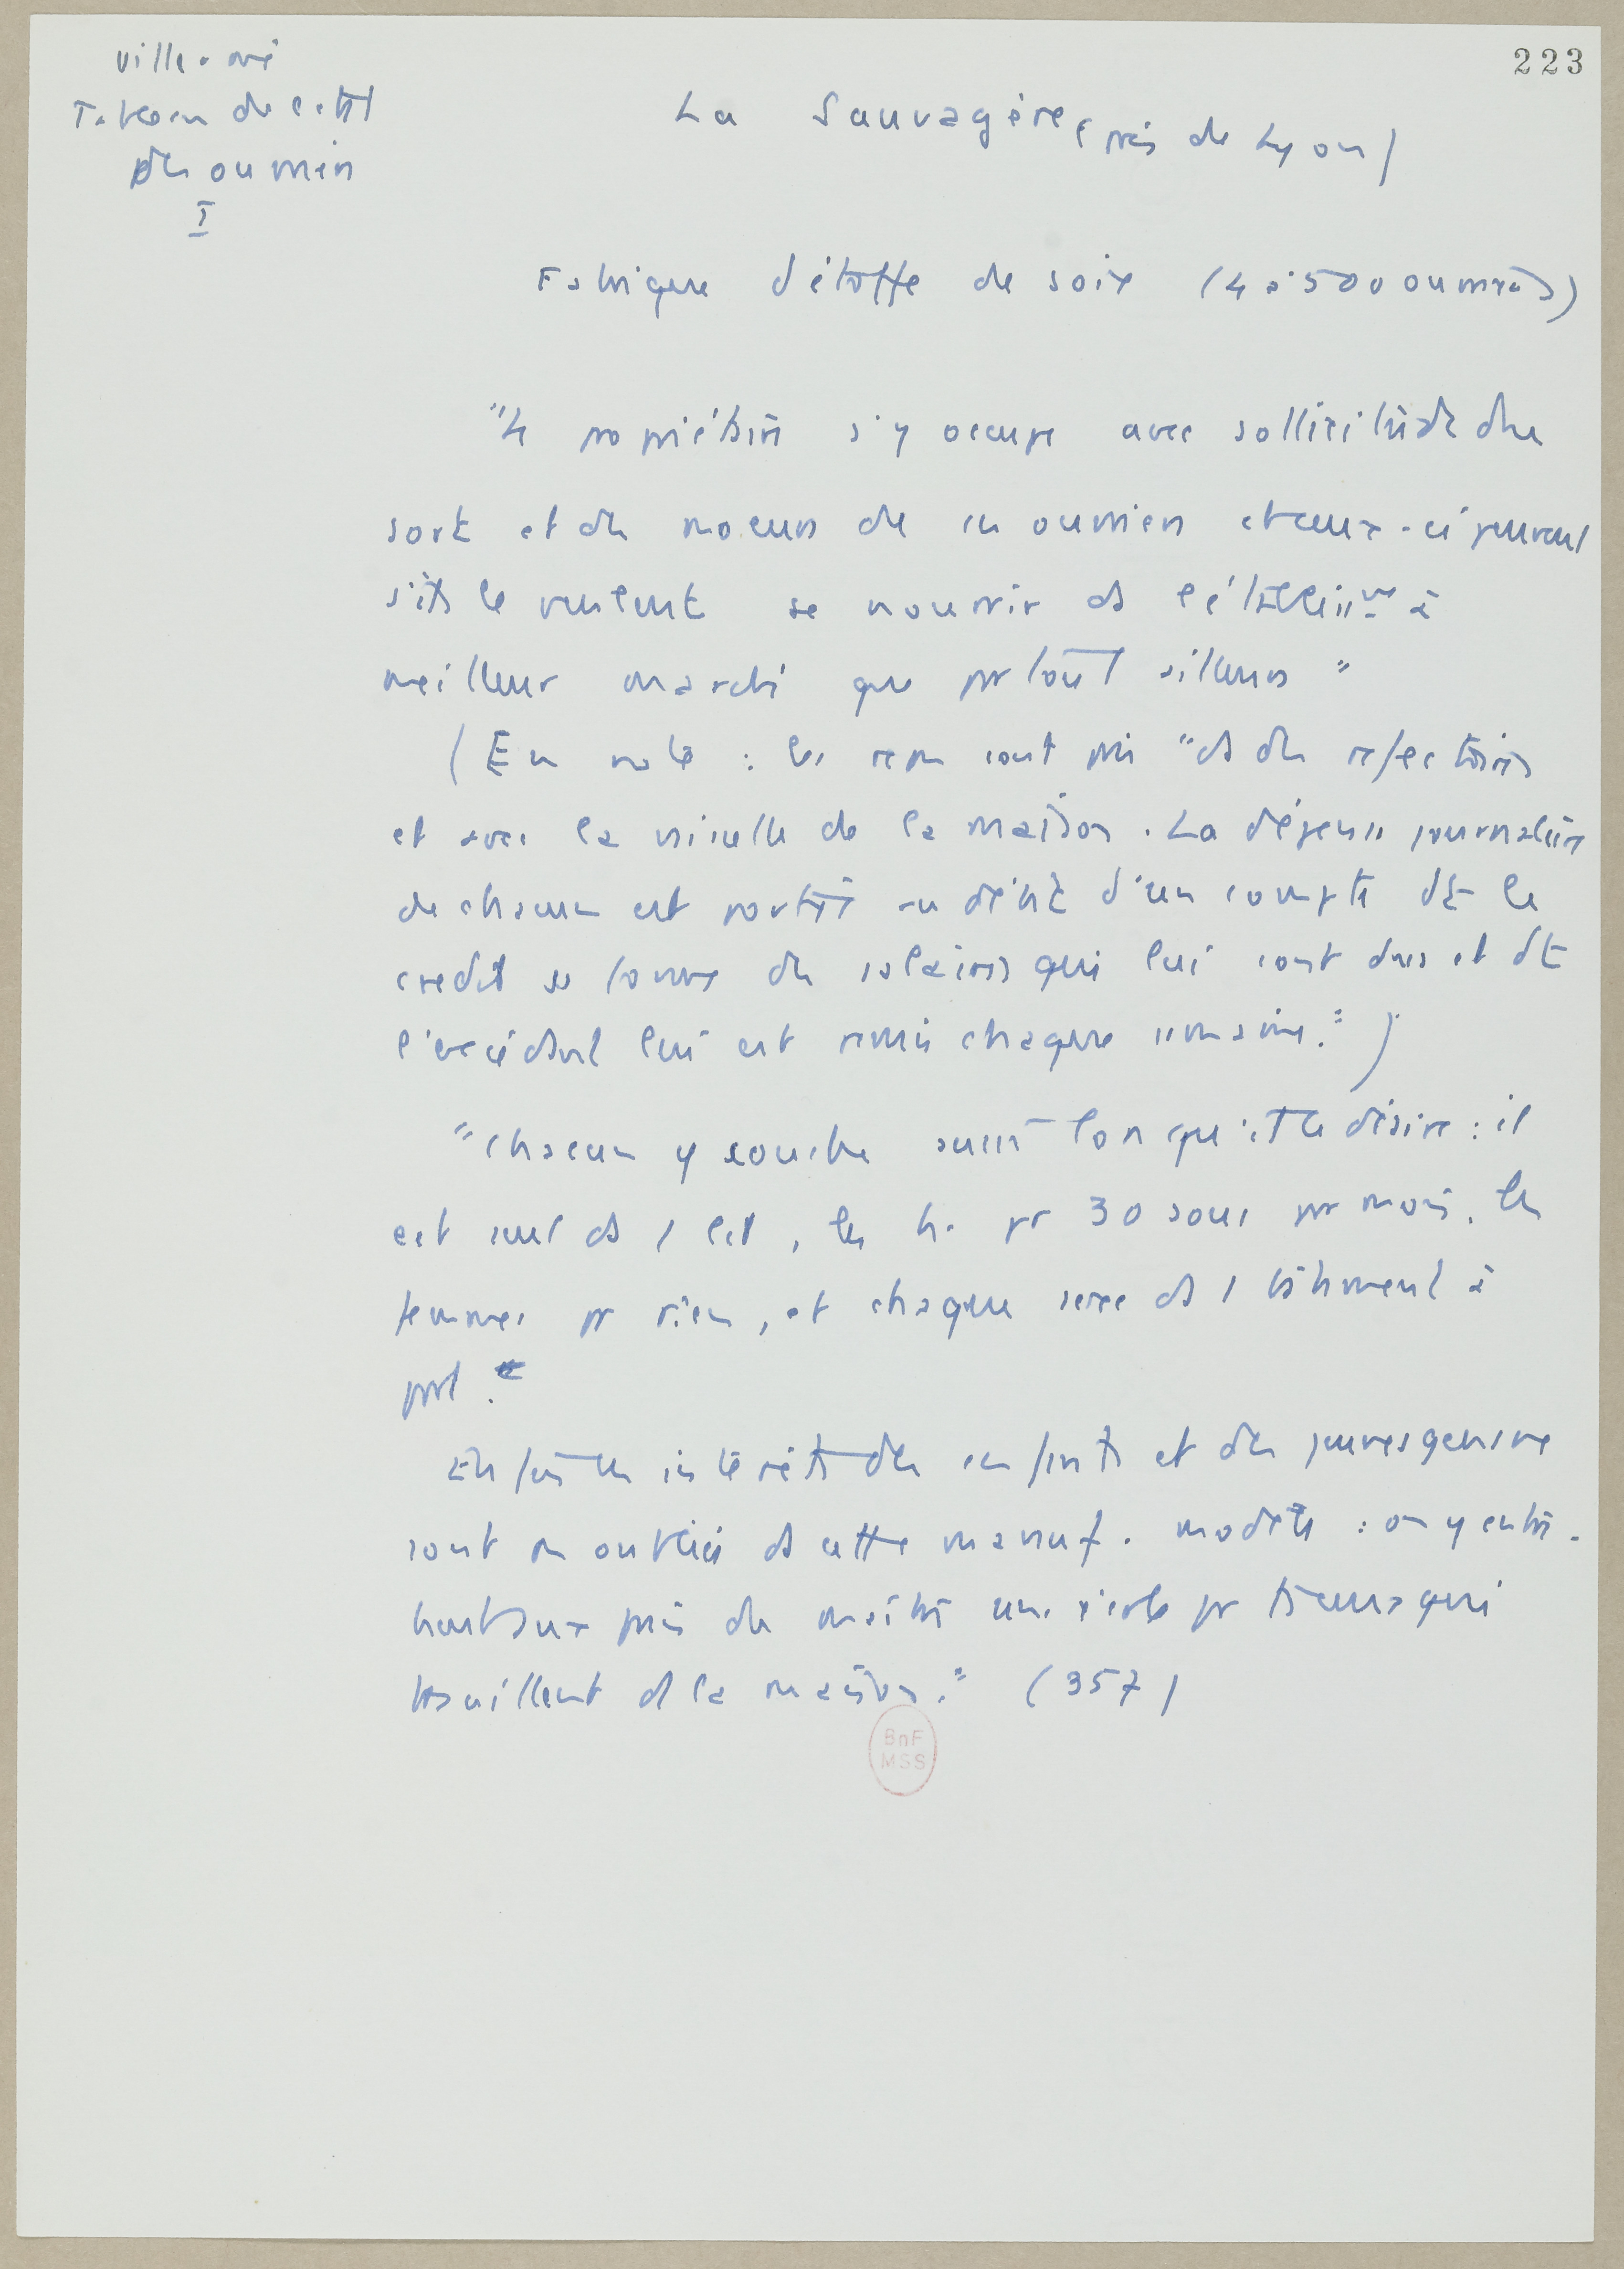 223
Villermé
Tableau de l'état
des ouvriers
I
La Sauvagère (près de Lyon)
Fabrique d'étoffe de soie (4 à 500 ouvriers)
"Le propriétaire s'y occupe avec sollicitude du
sort et des moeurs de ces ouvriers et ceux-ci peuvent
s'ils le veulent se nourrir ds l'établissmt à
meilleur marché que partout ailleurs"
(En note : les repas sont pris "ds des refectoires
et avec la vaisselle de la maison. La dépense journalière
de chacun est portée au débit d'un compte dt le
credit se trouve des salaires qui lui sont dus et dt
l'excédent lui est remis chaque semaine.")
"Chacun y couche aussi lorsqu'il le désire : il
est seul ds 1 lit, les h. pr 30 sous par mois, les
femmes pr rien, et chaque sexe ds 1 bâtiment à
part.
Enfin les intérêts des enfants et des jeunes gens ne
sont pas oubliés ds cette manuf. modèle : on y entre-
tient aux prix des maîtres une école pr tous ceux qui
travaillent ds la maison." (357)
BnF
MSS